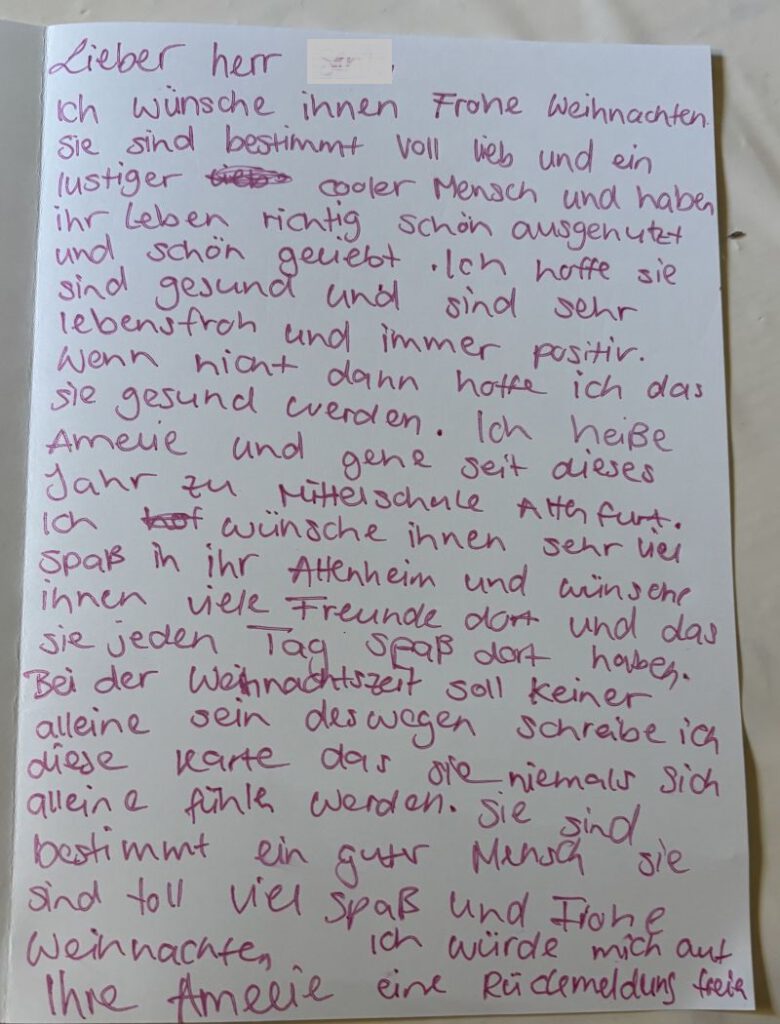 Lieber herr
Ich wünsche ihnen Frohe Weihnachten.
Sie sind bestimmt voll lieb und ein
lustiger cooler Mensch und haben
ihr Leben richtig schön ausgenutzt
und schön geliebt. Ich hoffe sie
sind gesund und sind sehr
lebensfroh und immer positiv.
Wenn nicht dann hoffe ich das
sie gesund werden. Ich heiße
Amelie und gehe seit dieses
Jahr zu Mittelschule Altenfurt.
Ich wünsche ihnen sehr viel
spaß in ihr Altenheim und wünsche
ihnen viele Freunde dort und das
sie jeden Tag spaß dort haben.
Bei der Weihnachtszeit soll keiner
alleine sein deswegen schreibe ich
diese Karte das sie niemals sich
alleine fühlen werden. Sie sind
bestimmt ein guter Mensch sie
sind toll viel spaß und Frohe
Weihnachten, ich würde mich auf
Ihre Amelie eine Rückmeldung freuen